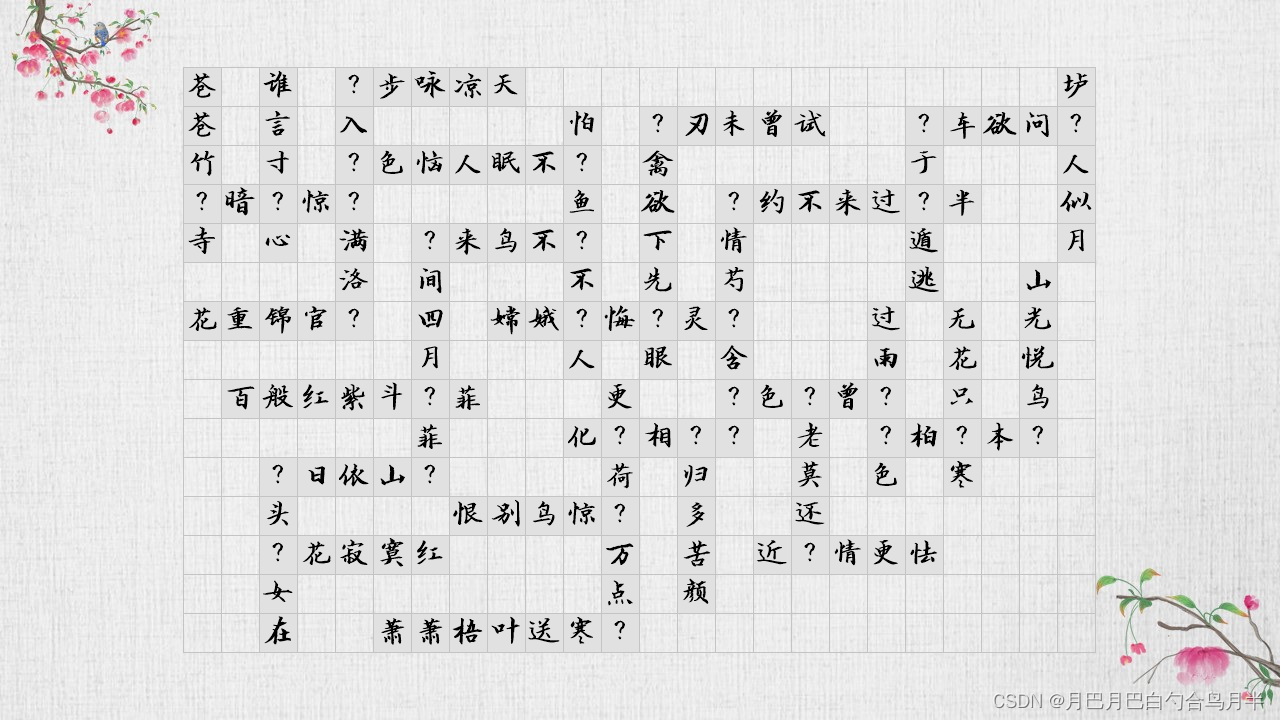 苍 谁 ? 步 咏 凉 天 垆
苍 言 入 怕 ? 刃 未 曾 试 ? 车 欲 问 ?
竹 寸 ? 色 恼 人 眠 不 ? 禽 于 人
? 暗 ? 惊 ? 鱼 欲 ? 约 不 来 过 ? 半 似
寺 心 满 ? 来 鸟 不 ? 下 情 遁 月
洛 间 不 先 芍 逃 山
花 重 锦 官 ? 四 嫦 娥 ? 悔 ? 灵 ? 过 无 光
月 人 眼 含 雨 花 悦
百 般 红 紫 斗 ? 菲 更 ? 色 ? 曾 ? 只 鸟
菲 化 ? 相 ? ? 老 ? 柏 ? 本 ?
? 日 依 山 ? 荷 归 莫 色 寒
头 恨 别 鸟 惊 ? 多 还
? 花 寂 寞 红 万 苦 近 ? 情 更 怯
女 点 颜
在 萧 萧 梧 叶 送 寒 ?
CSDN @月巴月巴白勺合鸟月半